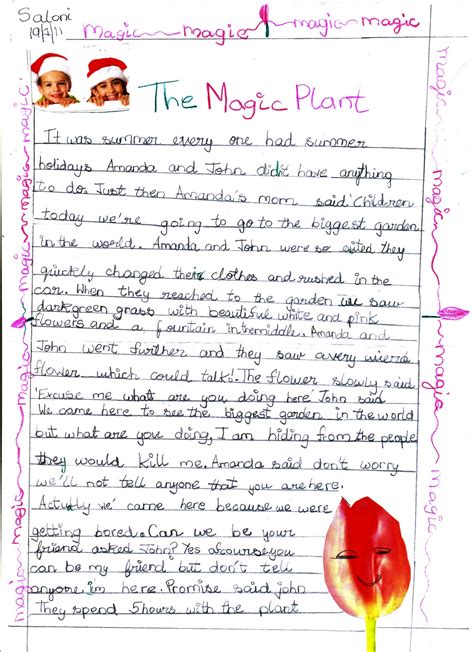 Saloni
19/7/11
Magic magic magic magic
The Magic Plant
It was summer every one had summer
holidays Amanda and John didn't have anything
to do. Just then Amanda's mom said 'Children
today we're going to go to the biggest garden
in the world. Amanda and John were so exited they
quickly changed their clothes and rushed in the
car. When they reached to the garden we saw
dark green grass with beautiful white and pink
flowers and a fountain in the middle. Amanda and
John went further and they saw a very wierd
flower which could talk!. The flower slowly said
'Excuse me what are you doing here' John said
We came here to see the biggest garden in the world
but what are you doing, I am hiding from the people
they would kill me. Amanda said don't worry
we'll not tell anyone that you are here.
Actully we' came here because we were
getting bored. Can we be your
friend asked John? Yes afcourse you
can be my friend but don't tell
anyone im here. Promise said john
They spend 5 hours with the plant
magic magic magic magic magic magic
Magic magic magic magic magic